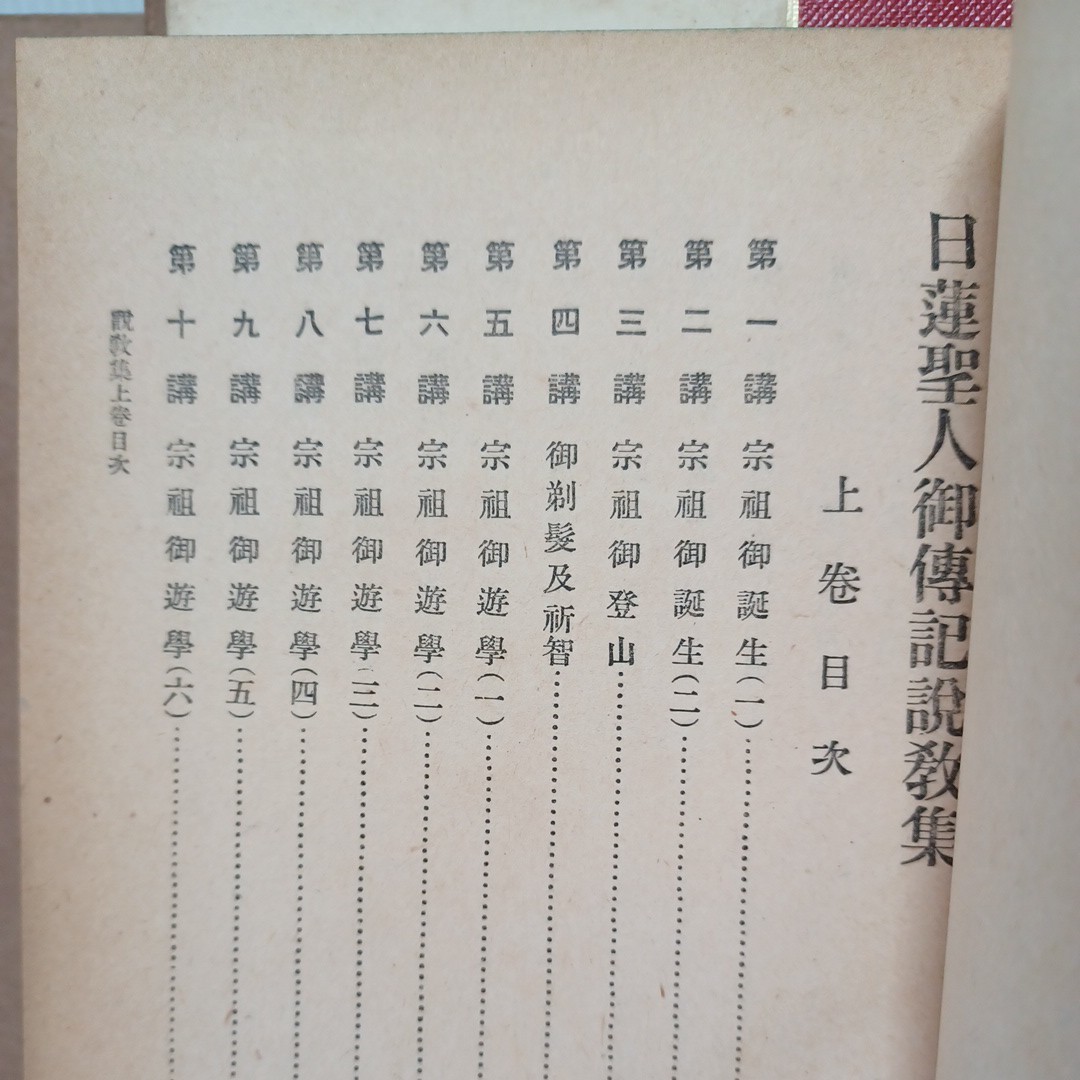 日蓮聖人御傳記說敎集
上卷目次
第一講 宗祖御誕生(一)
第二講 宗祖御誕生(二)
第三講 宗祖御登山
第四講 御剃髮及祈智
第五講 宗祖御遊學(一)
第六講 宗祖御遊學(二)
第七講 宗祖御遊學(三)
第八講 宗祖御遊學(四)
第九講 宗祖御遊學(五)
第十講 宗祖御遊學(六)
說敎集上卷目次